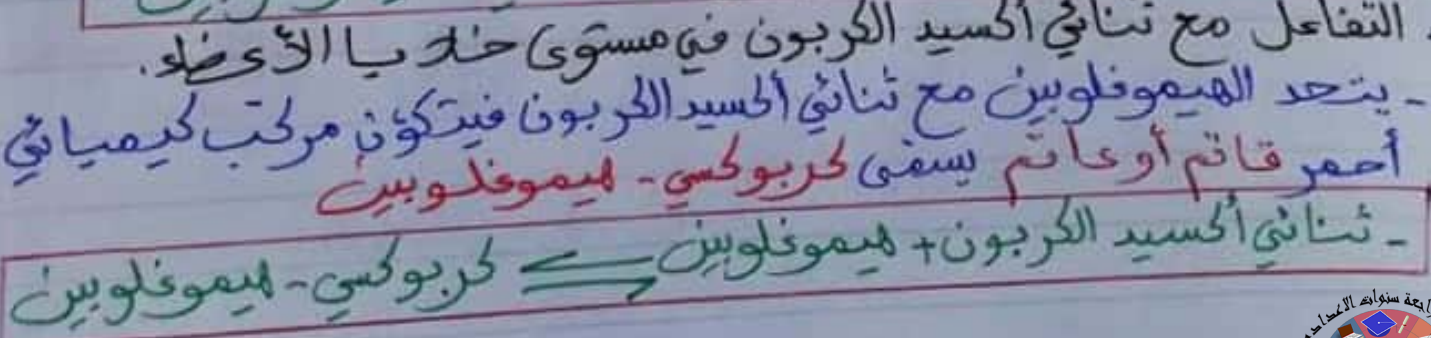 التفاعل مع ثنائي أكسيد الكربون في مستوى خلايا الأعضاء.
- يتحد الهيموغلوبين مع ثنائي أكسيد الكربون فيتكون مركب كيميائي
أحمر قاتم أو عاتم يسمى كربوكسي - هيموغلوبين
- ثنائي أكسيد الكربون + هيموغلوبين ⇌ كربوكسي - هيموغلوبين
سنوات الاعدادي